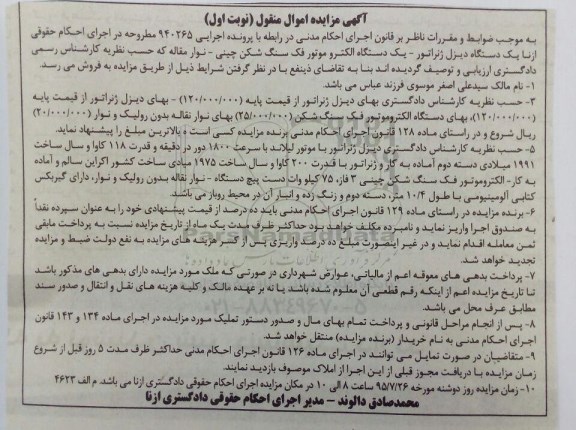 آگهی مزایده اموال منقول (نوبت اول)
به موجب ضوابط و مقررات ناظر بر قانون اجرای احکام مدنی در رابطه با پرونده اجرایی ۹۴۰۲۶۵ مطروحه در اجرای احکام حقوقی
ازنا یک دستگاه دیزل ژنراتور - یک دستگاه الکترو موتور فک سنگ شکن چینی - نوار مقاله که حسب نظریه کارشناس رسمی
دادگستری ارزیابی و توصیف گردیده اند بنا به تقاضای ذینفع با در نظر گرفتن شرایط ذیل از طریق مزایده به فروش می رسد.
۱- نام مالک سیدعلی اصغر موسوی فرزند عباس می باشد.
۳- حسب نظریه کارشناس دادگستری بهای دیزل ژنراتور از قیمت پایه (۱۲۰/۰۰۰/۰۰۰) - بهای دیزل ژنراتور از قیمت پایه
(۱۲۰/۰۰۰/۰۰۰)، بهای دستگاه الکتروموتور فک سنگ شکن (۲۵/۰۰۰/۰۰۰) بهای نوار نقاله بدون رولیک و نوار (۲۰/۰۰۰/۰۰۰)
ریال شروع و در راستای ماده ۱۲۸ قانون اجرای احکام مدنی برنده مزایده کسی است که بالاترین مبلغ را پیشنهاد نماید.
۵- حسب نظریه کارشناس دادگستری دیزل ژنراتور با موتور لیلاند با سرعت ۱۸۰۰ دور در دقیقه و قدرت ۱۱۸ کاوا و سال ساخت
۱۹۹۱ میلادی دسته دوم آماده به کار و ژنراتور با قدرت ۲۰۰ کاوا و سال ساخت ۱۹۷۵ میلادی ساخت کشور اکراین سالم و آماده
به کار- الکتروموتور فک سنگ شکن چینی ۳ فاز، ۷۵ کیلو وات دست پیچ دستگاه - نوار نقاله بدون رولیک و نوار، دارای گیربکس
کتابی آلومینیومی با طول ۱۰/۴ متر، دسته دوم و زنگ زده و انبار آن در محیط روباز می باشد.
۶- برنده مزایده در راستای ماده ۱۲۹ قانون اجرای احکام مدنی باید ده درصد از قیمت پیشنهادی خود را به عنوان سپرده نقداً
به صندوق اجرا واریز نماید و نامبرده مکلف خواهد بود حداکثر ظرف مدت یک ماه از تاریخ مزایده نسبت به پرداخت مابقی
ثمن معامله اقدام نماید و در غیر اینصورت مبلغ ده درصد واریزی پس از کسر هزینه های مزایده به نفع دولت ضبط و مزایده
تجدید خواهد شد.
۷- پرداخت بدهی های معوقه اعم از مالیاتی، عوارض شهرداری در صورتی که ملک مورد مزایده دارای بدهی های مذکور باشد
تا تاریخ مزایده اعم از اینکه رقم قطعی آن معلوم شده باشد یا نه بر عهده مالک و کلیه هزینه های نقل و انتقال و صدور سند
مطابق عرف محل می باشد.
۸- پس از انجام مراحل قانونی و پرداخت تمام بهای مال و صدور دستور تملیک مورد مزایده در اجرای ماده ۱۳۴ و ۱۴۳ قانون
اجرای احکام مدنی به نام خریدار (برنده مزایده) منتقل خواهد شد.
۹- متقاضیان در صورت تمایل می توانند در اجرای ماده ۱۲۶ قانون اجرای احکام مدنی حداکثر ظرف مدت ۵ روز قبل از شروع
زمان مزایده با دریافت مجوز قبلی از این اجرا از املاک موصوف بازدید نمایند.
۱۰- زمان مزایده روز دوشنبه مورخه ۹۵/۷/۲۶ ساعت ۸ الی ۱۰ در مکان مزایده اجرای احکام حقوقی دادگستری ازنا می باشد. م الف ۴۶۲۳
محمدصادق دالوند - مدیر اجرای احکام حقوقی دادگستری ازنا